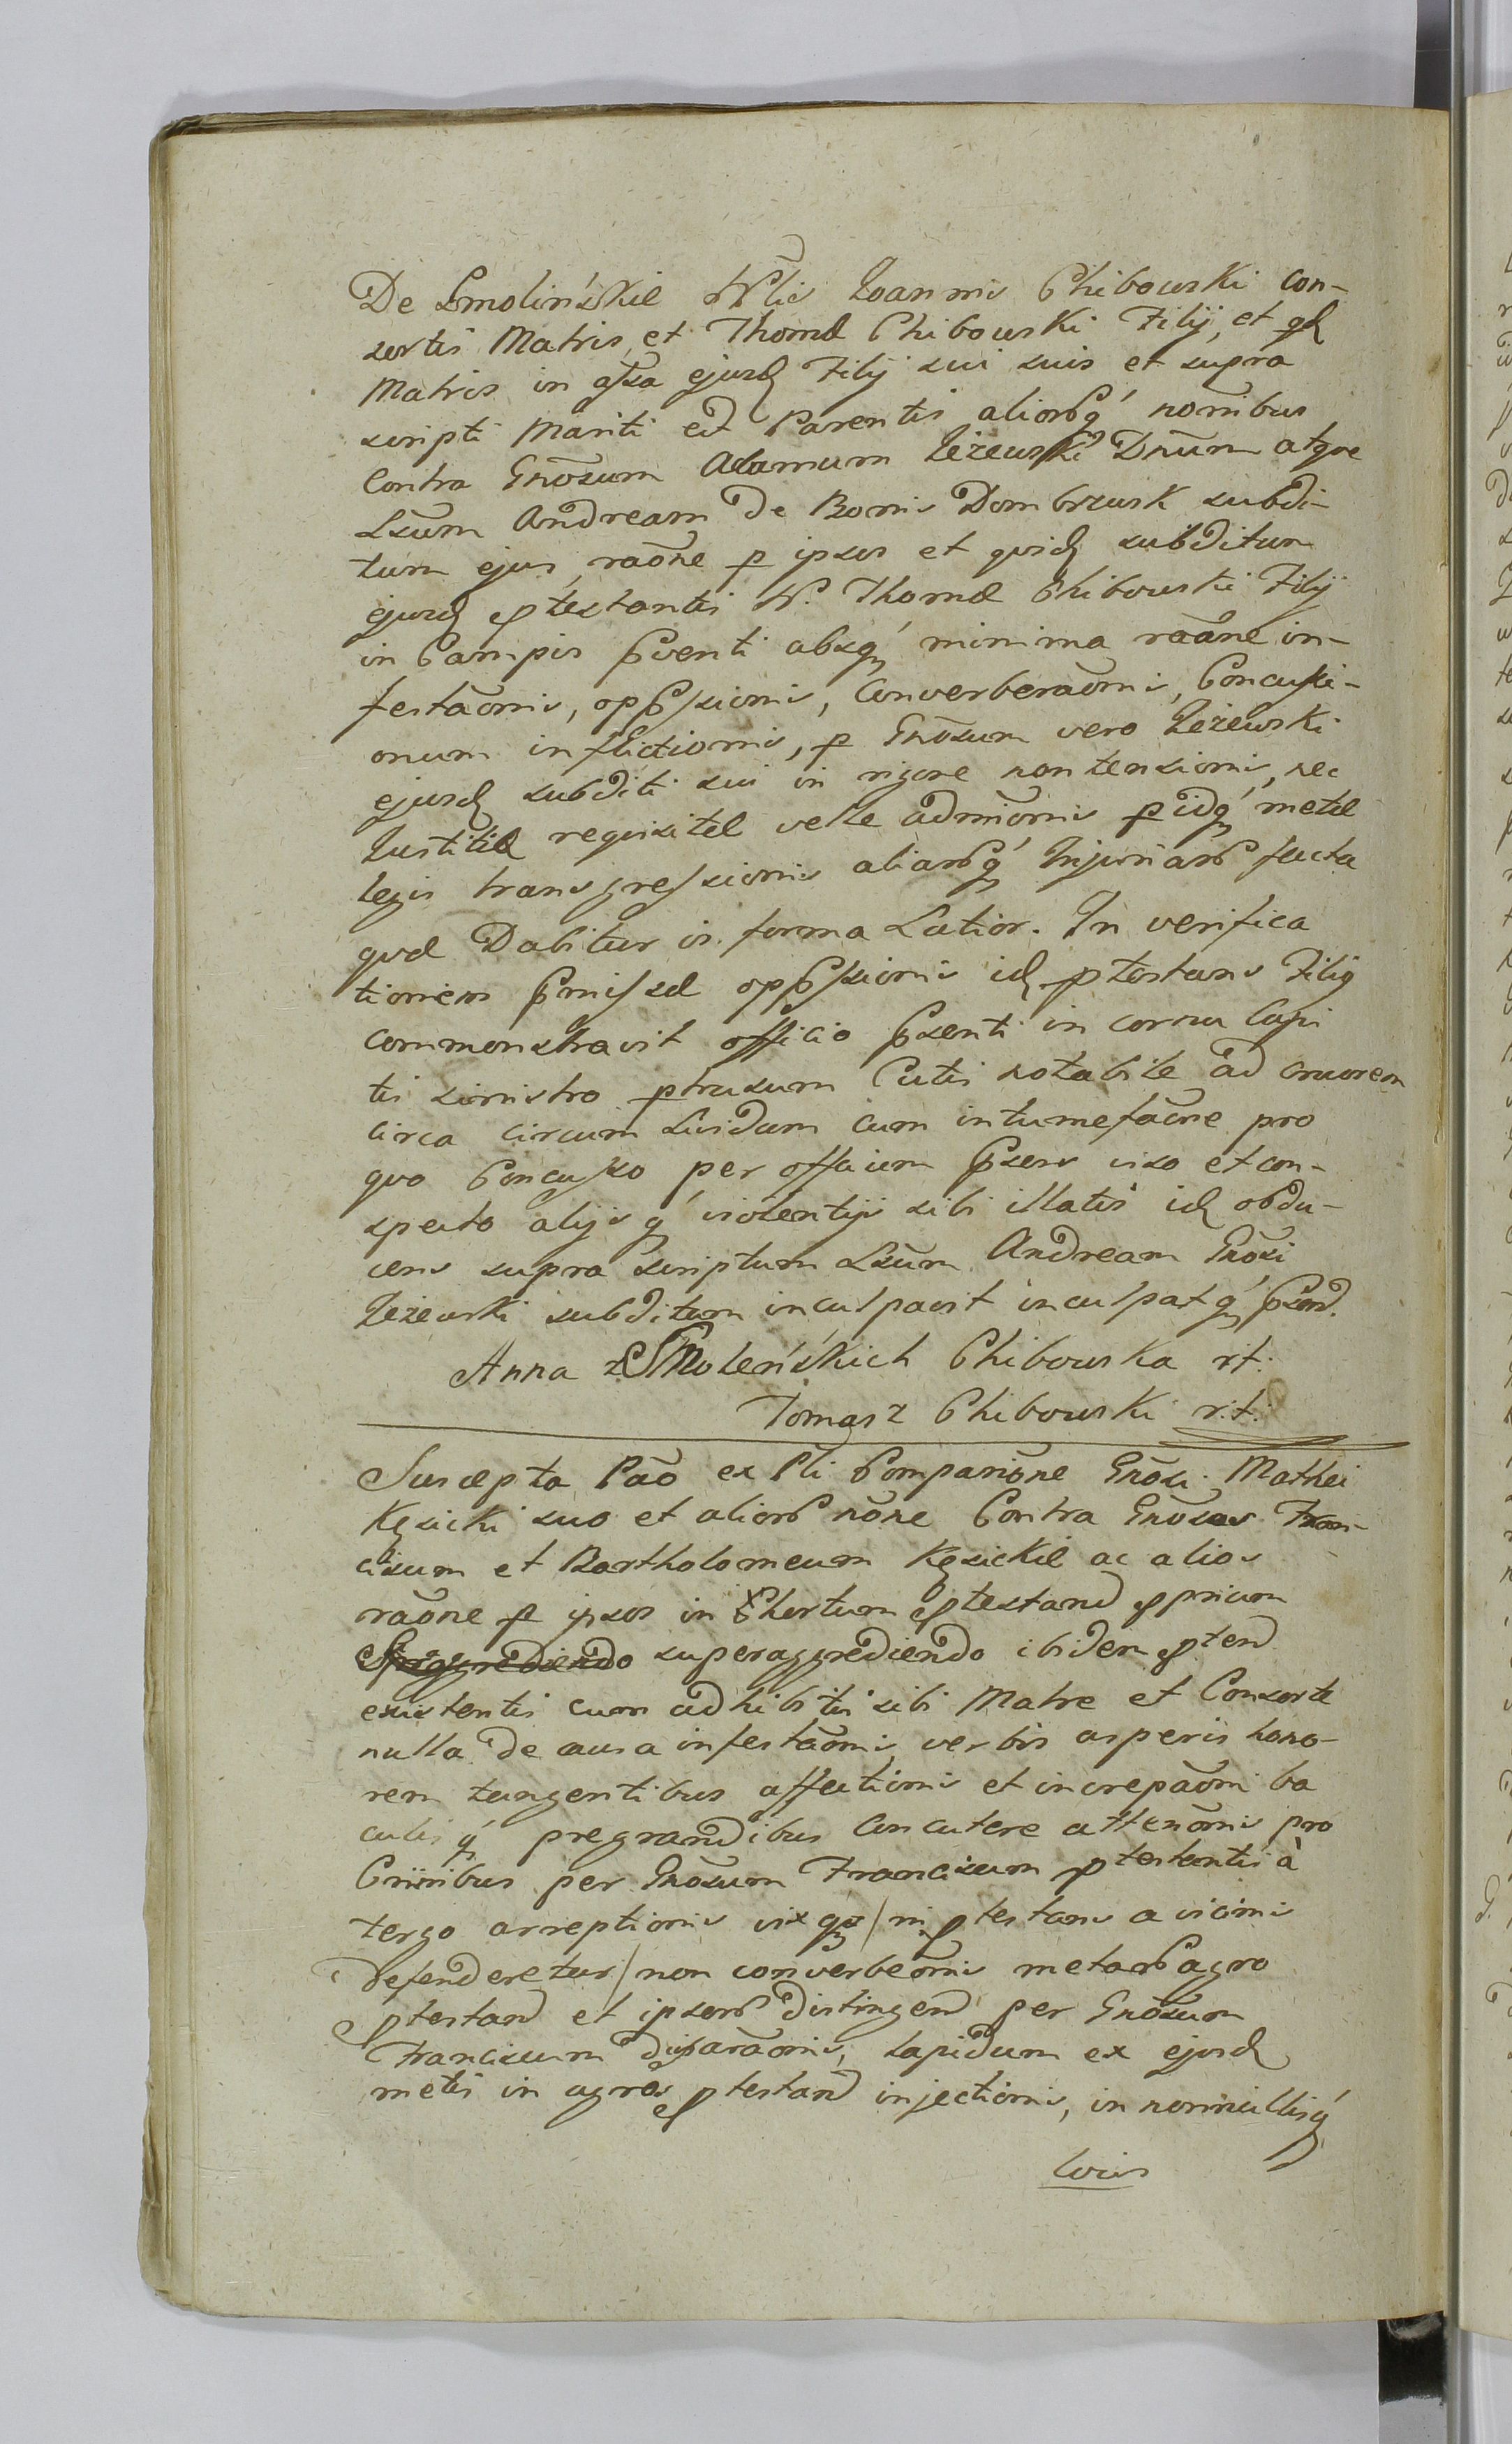 De Smolińskie Mflis Joannis Chibowski con-
sortis Matris, et Thomæ Chibowski Filij, et qd
Matris in assa ejusd Filij sui suis et supra
scripti Mariti et Parentis aliorq́ nomibus
Contra Gnōsum Adamum Jeżewski Dnūm atque
Lsūm Andream De Bonis Dombrusk subdi-
tum ejus, raōne p ipsos et quid subditum
ejusd ptestantis N. Thomæ Chibowski Filij
in Campis pventi absq́ minima raōne in-
festaōnis, oppssionis, Converberaōnis, Concussi-
onum inflictionis, p Gnōsum vero Jeżewski
ejusd subditi sui in rigore non tensionis, nec
Justitiæ requisitæ velle admiōnis p idq́ metæ
legis transgressionis aliarq́ Injuriar facta
quæ Dabitur in forma Latior. In verifica
tionem pmissæ oppssionis id ptestans Filig
commonstravit officio psenti in cornu Capi
tis sinistro ptrusum Cutis notabile ad cruorem
circa circum Lividum cum intumefaōne pro
quo Concusso per officium psens viso et con-
specto alijsq́ violentijs sibi illatis id obdu-
cens supra scriptum Lsūm Andream Gnōsi
Jeżewski subditum inculpavit inculpatq́ psend.
Anna z Smoleńskich Chibowska rt:
Tomasz Chibowski r.t:
Suscepta Pāo ex Pli Comparitiōne Gnōsi Mathei
Kęsicki suo et alior nōne Contra Gnōsos Fran-
ciscum et Bartholomeum Kęsickie ac alios
raōne p ipsos in Hortum ptestand ppricum
superaggrediendo ibidem ptend
existentis cum adhibitis sibi Matre et Consorte
nulla de causa infestaōnis verbis asperis hono-
rem tangentibus affectionis et increpaōni ba
culisq́ pregrandibus concutere attenōnis pro
Criñibus per Gnōsum Franciscum ptestantis à
tergo arreptionis vix qz / ni ptestans a vicinis
Defenderetur / non converbeōnis metar agro
ptestand et ipsor Distingend per Gnōsum
Franciscum disparaōnis, Lapidum ex ejusd
metis in agros ptestand injectionis, in nonnullisq́
locis